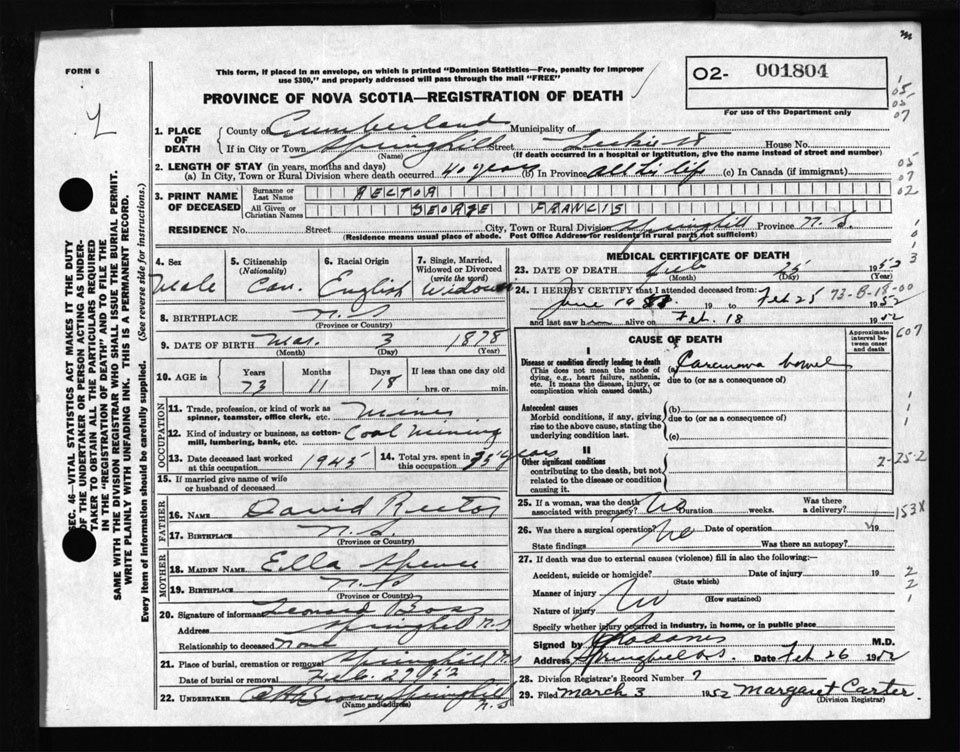 FORM 6
This form, if placed in an envelope, on which is printed "Dominion Statistics—Free, penalty for improper
use $300," and properly addressed will pass through the mail "FREE"
O2- 001804
PROVINCE OF NOVA SCOTIA—REGISTRATION OF DEATH
For use of the Department only
1. PLACE OF DEATH
County of Cumberland Municipality of
If in City or Town Springhill Street House No.
(Name) (If death occurred in a hospital or institution, give the name instead of street and number)
2. LENGTH OF STAY (in years, months and days)
(a) In City, Town or Rural Division where death occurred 40 years (b) In Province All his life (c) In Canada (if immigrant)
3. PRINT NAME OF DECEASED
Surname or Last Name RECTOR
All Given or Christian Names GEORGE FRANCIS
RESIDENCE No. Street City, Town or Rural Division Springhill Province N. S.
(Residence means usual place of abode. Post Office Address for residents in rural parts not sufficient)
4. Sex Male
5. Citizenship (Nationality) Can.
6. Racial Origin English
7. Single, Married, Widowed or Divorced (write the word) Widower
8. BIRTHPLACE N. S
(Province or Country)
9. DATE OF BIRTH Mar. 3 1878
(Month) (Day) (Year)
10. AGE in Years 73 Months 11 Days 18 If less than one day old
hrs. or min.
OCCUPATION
11. Trade, profession, or kind of work as
spinner, teamster, office clerk, etc. Miner
12. Kind of industry or business, as cotton-
mill, lumbering, bank, etc. Coal Mining
13. Date deceased last worked
at this occupation 1945
14. Total yrs. spent in
this occupation 35 years
15. If married give name of wife
or husband of deceased
FATHER
16. NAME David Rector
17. BIRTHPLACE N. S.
(Province or Country)
MOTHER
18. MAIDEN NAME Ella Spence
19. BIRTHPLACE N. S
(Province or Country)
20. Signature of informant Leonard Boss
Address Springhill N.S
Relationship to deceased None
21. Place of burial, cremation or removal Springhill N.S
Date of burial or removal Feb. 27 1952
22. UNDERTAKER Brown Springhill
(Name and address) N.S
MEDICAL CERTIFICATE OF DEATH
23. DATE OF DEATH Feb 25 1952
(Month) (Day) (Year)
24. I HEREBY CERTIFY that I attended deceased from:
June 19 19 to Feb 25 1952
73-B-18-00
and last saw h alive on Feb. 18 1952
CAUSE OF DEATH
Approximate interval between onset and death
I
Disease or condition directly leading to death
(This does not mean the mode of
dying, e.g., heart failure, asthenia,
etc. It means the disease, injury, or
complication which caused death.)
(a) Carcinoma bowel
due to (or as a consequence of)
Antecedent causes
Morbid conditions, if any, giving
rise to the above cause, stating the
underlying condition last.
(b)
due to (or as a consequence of)
(c)
II
Other significant conditions
contributing to the death, but not
related to the disease or condition
causing it.
2-25-2
25. If a woman, was the death
associated with pregnancy? No Duration weeks. Was there
a delivery?
153X
26. Was there a surgical operation? No Date of operation 19
State findings Was there an autopsy?
27. If death was due to external causes (violence) fill in also the following:—
Accident, suicide or homicide? Date of injury 19
(State which)
Manner of injury No
(How sustained)
Nature of injury
Specify whether injury occurred in industry, in home, or in public place
Signed by M.D.
Address Springhill N.S. Date Feb 26 1952
28. Division Registrar's Record Number 7
29. Filed March 3 1952 Margaret Carter
(Division Registrar)
SEC. 46—VITAL STATISTICS ACT MAKES IT THE DUTY
OF THE UNDERTAKER OR PERSON ACTING AS UNDER-
TAKER TO OBTAIN ALL THE PARTICULARS REQUIRED
IN THE "REGISTRATION OF DEATH" AND TO FILE THE
SAME WITH THE DIVISION REGISTRAR WHO SHALL ISSUE THE BURIAL PERMIT.
WRITE PLAINLY WITH UNFADING INK. THIS IS A PERMANENT RECORD.
Every item of information should be carefully supplied. (See reverse side for instructions.)